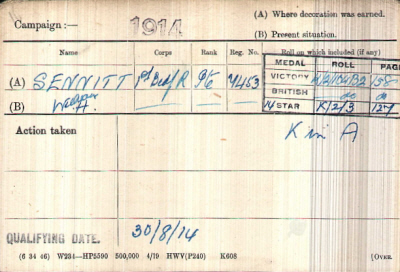 Campaign :— 1914
(A) Where decoration was earned.
(B) Present situation.
Name Corps Rank Reg. No. Roll on which included (if any)
MEDAL ROLL PAGE
(A) SENNITT R Pte 4453
VICTORY
(B) BRITISH do do
14 STAR K/2/3 127
Action taken
K in A
QUALIFYING DATE. 30/8/14
(6 34 46) W234—HP5590 500,000 4/19 HWV(P240) K608 [OVER.